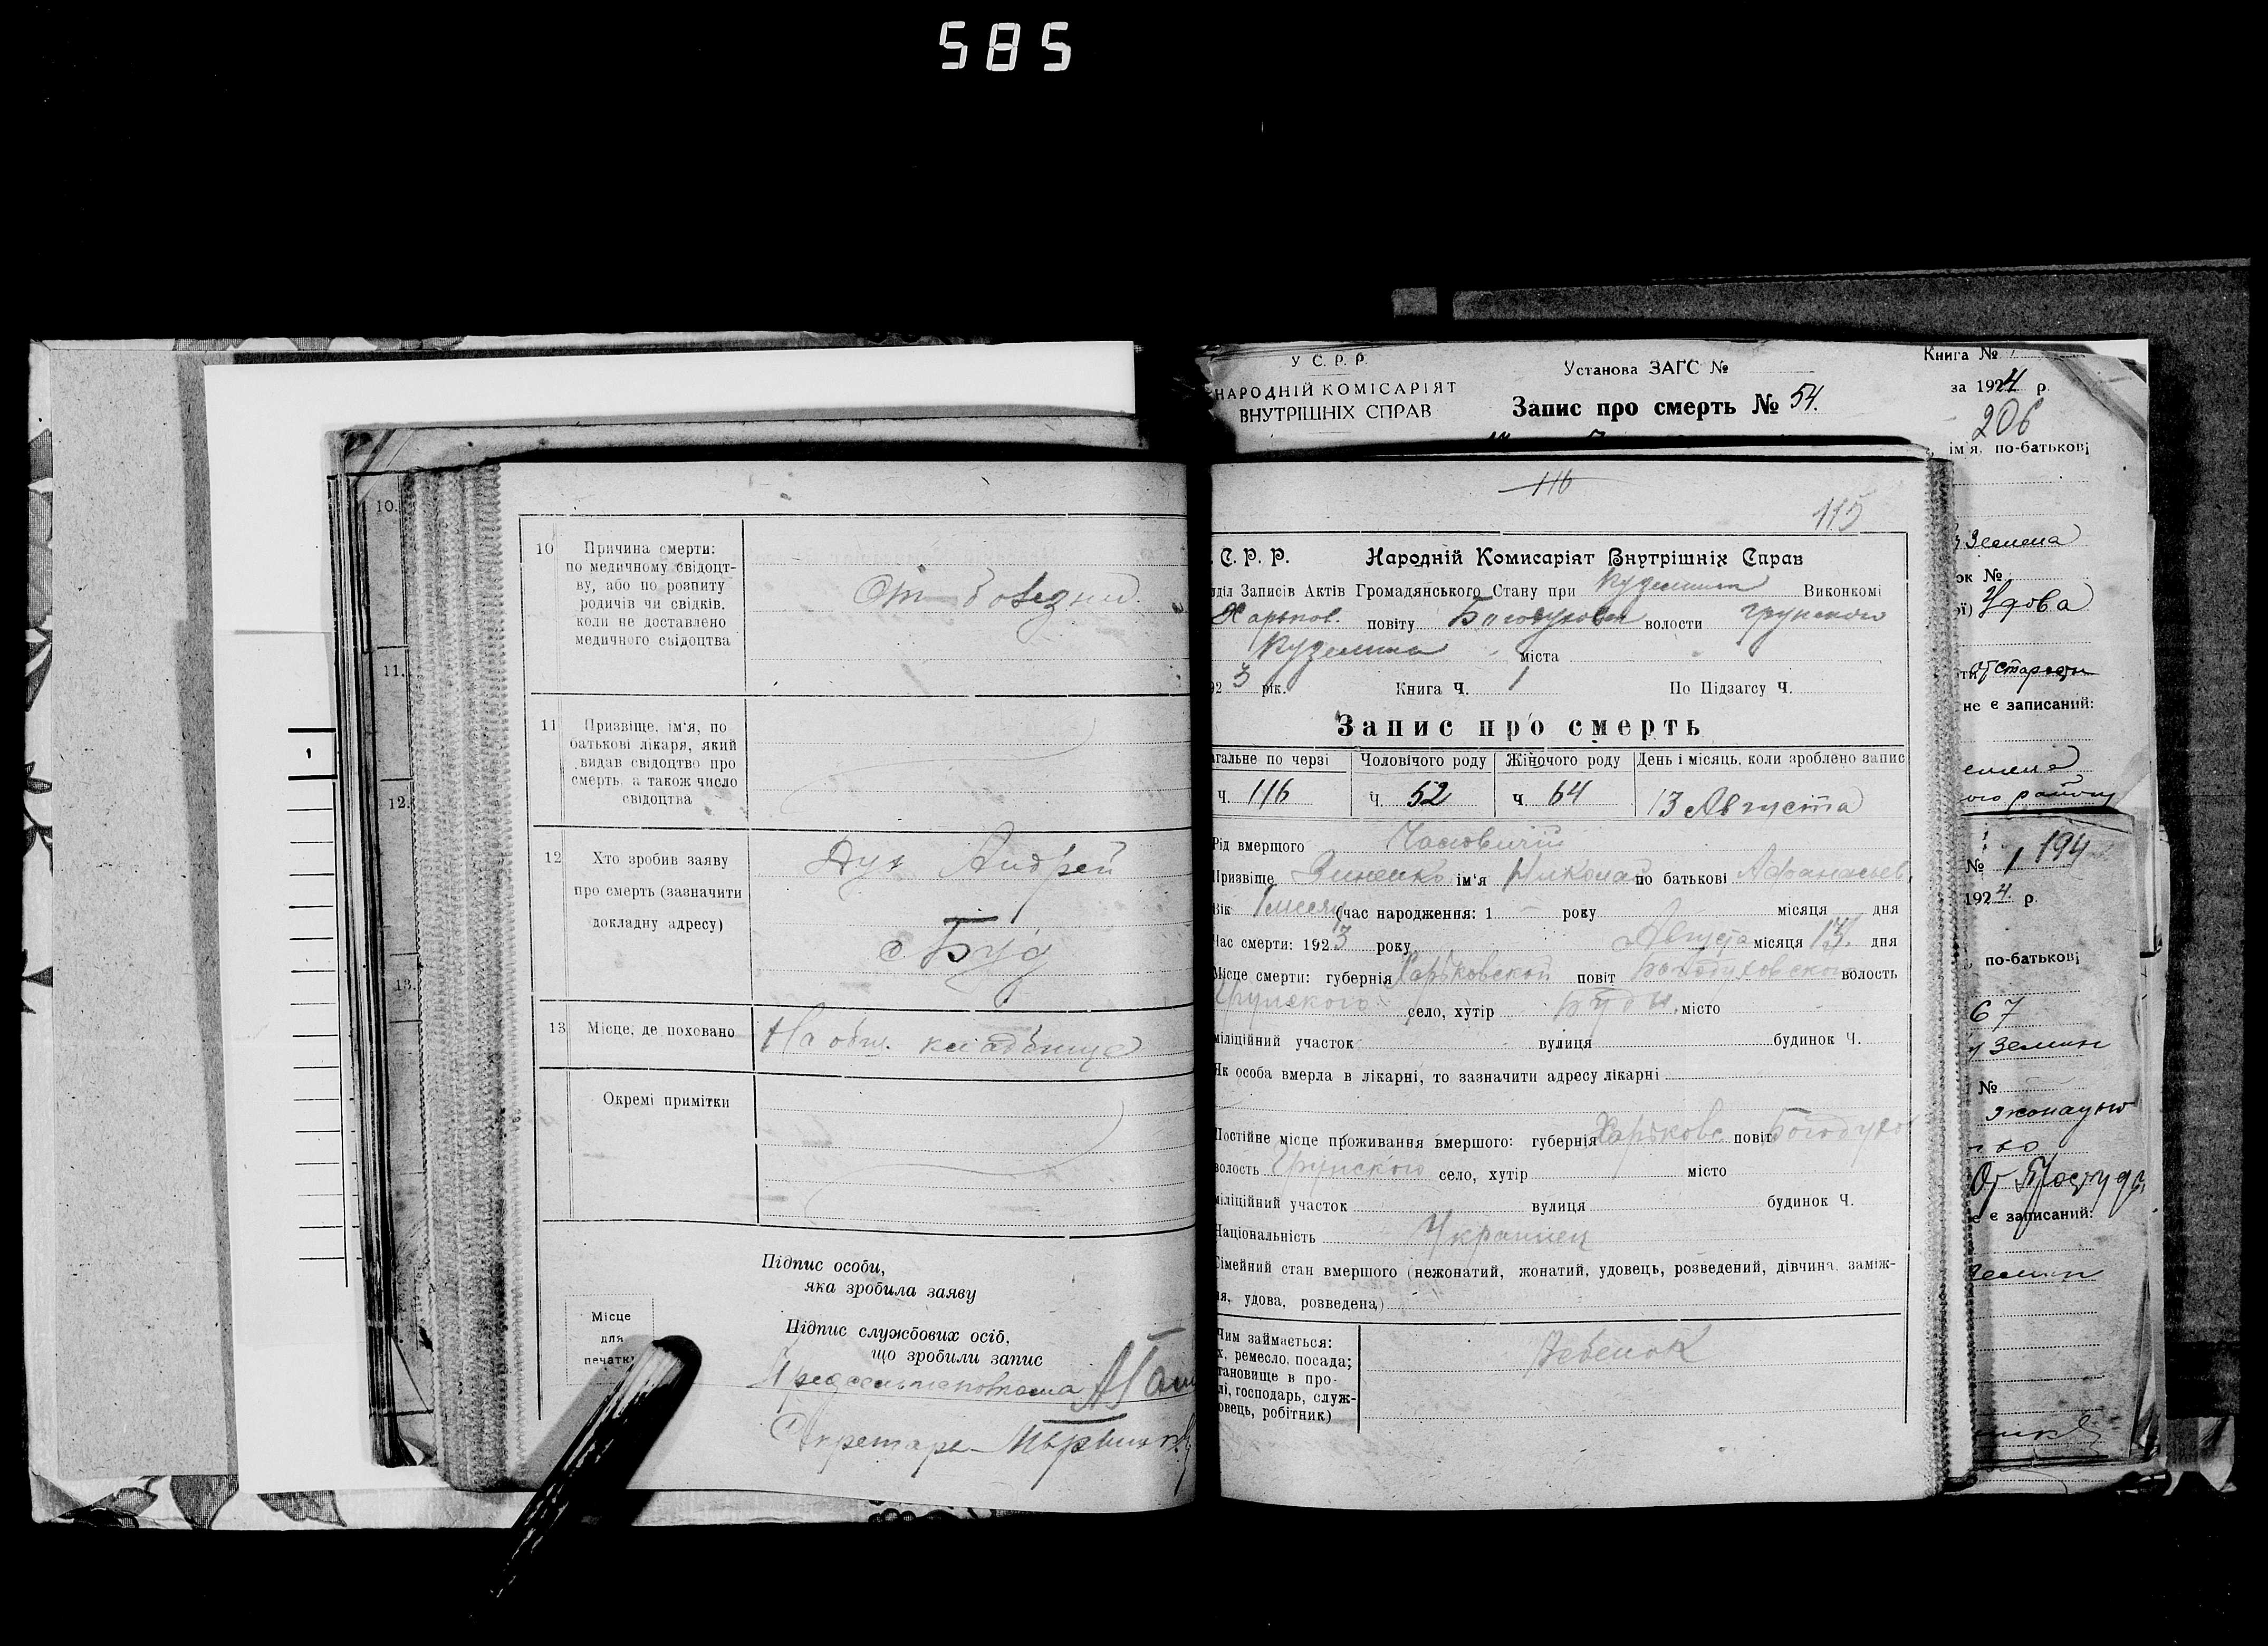 585
10.
11.
12.
13.
1
10 Причина смерти:
по медичному свідоцт-
ву, або по розпиту
родичів чи свідків,
коли не доставлено
медичного свідоцтва
От болезни.
11 Призвіще, ім'я, по
батькові лікаря, який
видав свідоцтво про
смерть, а також число
свідоцтва
12 Хто зробив заяву
про смерть (зазначити
докладну адресу)
Андрей
с.
13 Місце, де поховано На общ. кладбище
Окремі примітки
Підпис особи,
яка зробила заяву
Місце
для
печатки
Підпис службових осіб,
що зробили запис
Секретарь
У С. Р. Р.
НАРОДНІЙ КОМІСАРІЯТ
ВНУТРІШНІХ СПРАВ
Установа ЗАГС №
Запис про смерть № 54.
Книга №
за 1924 р.
206
116
115
С. Р. Р. Народній Комисаріят Внутрішніх Справ
діл Записів Актів Громадянського Стану при Виконкомі
Харьков. повіту Богодухов волости Грунской
міста
923 рік. Книга Ч. 1 По Підзагсу Ч.
Запис про смерть
гальне по черзі Чоловічого роду Жіночого роду День і місяць, коли зроблено запис
Ч. 116 Ч. 52 Ч. 64 13 Августа
Рід вмерщого
Призвіще Зиненко ім'я Николай по батькові Афанасьев.
Вік 1 месяц (час народження: 1 року місяця дня
Час смерти: 1923 року Августа місяця 13 дня
Місце смерти: губернія Харьковской повіт Богодуховской волость
Грунского село, хутір Буды, місто
міліційний участок вулиця будинок Ч.
Як особа вмерла в лікарні, то зазначити адресу лікарні
Постійне місце проживання вмершого: губернія Харьковс повіт Богодухо
волость Грунского село, хутір місто
міліційний участок вулиця будинок Ч.
Національність Украинец
Сімейний стан вмершого (нежонатий, жонатий, удовець, розведений, дівчина, заміж-
ня, удова, розведена)
Чим займається:
х, ремесло, посада;
тановище в про-
лі, господарь, служ-
овець, робітник)
Ребенок
ім'я, по-батькові
ок №
ої) Удова
не є записаний:
№ 1 194
1924. р.
по-батькові
67
№
От Простуды
е є записаний: